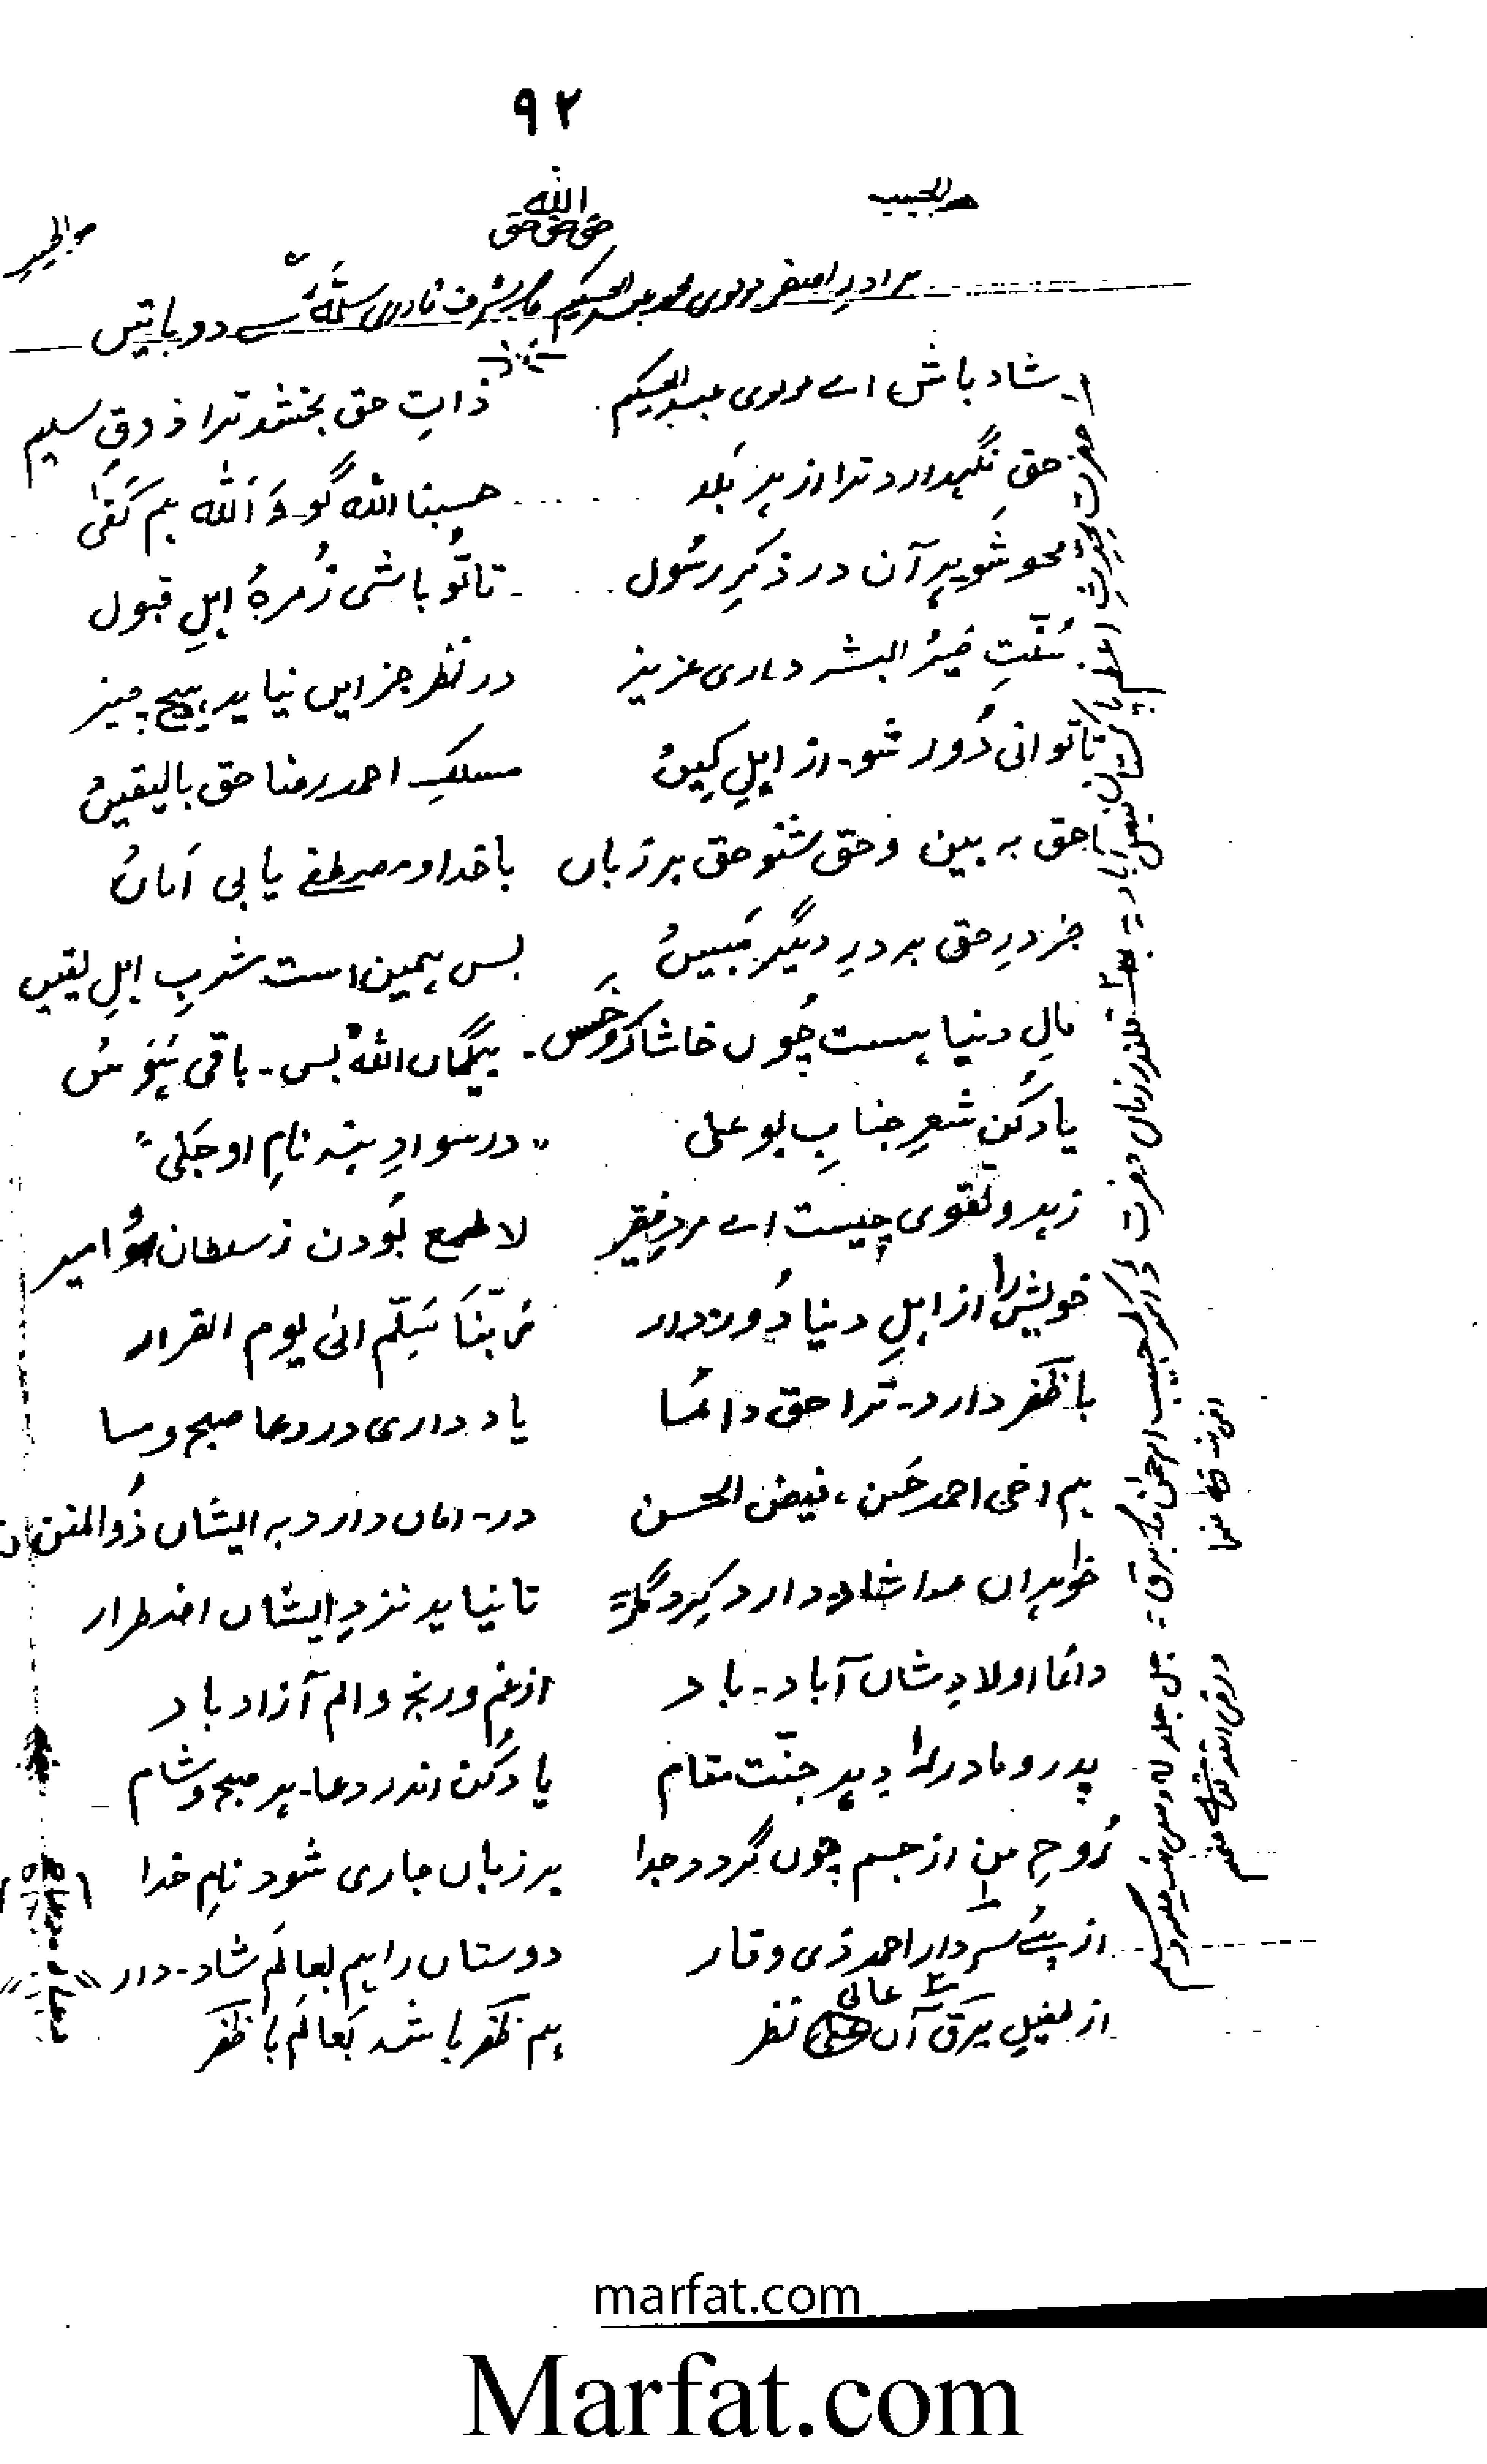 ۹۲
هوالحبیب
اللہ
حق حق حق
برادرِ اصغر مولوی محمد عبدالحکیم شرف قادری سلّمہٗ سے دو باتیں
شاد باش اے مولوی عبدالحکیم ذاتِ حق بخشد ترا ذوقِ سلیم
حق نگہدارد ترا از ہر بَلا حسبنا اللہ گو وَ اَللہ ہم کَفٰی
محو شو ہر آن در ذکرِ رسُول تا تُو باشی زُمرۂ اہلِ قبول
سُنّتِ خیرُ البشر داری عزیز در نظر جز ایں نیاید ہیچ چیز
تا توانی دُور شو۔ از اہلِ کیں مسلکِ احمد رضا حق بالیقیں
حق بہ بین و حق شنو حق بر زباں با خدا و مصطفٰے یابی اَماں
جز درِ حق بر درِ دیگر مَبیں بس ہمین است مشربِ اہلِ یقیں
مالِ دنیا ہست چُوں خاشاک و خَس۔ بیگماں اللہُ بس۔ باقی ہَوَس
یاد کُن شعرِ جنابِ بو علی "در سوادِ ہند نامِ او جَلی"
زہد و تقوی چیست اے مردِ فقیر لا طمع بُودن ز سلطان و امیر
خویش را از اہلِ دنیا دُور دار رَبّنَا سَلِّم الیٰ یوم القرار
با ظَفَر دارد۔ تُرا حق دائما یاد داری در دعا صبح و مسا
ہم اخی احمد حَسن، فیض الحسن در۔ اماں دارد بہ ایشاں ذُو المنن
خواہراں را شاد دارد کردگار تا نیاید نزدِ ایشاں اضطرار
دائما اولادِ شاں آباد۔ باد از غم و رنج و الم آزاد باد
پدر و مادر را دہد جنّت مقام یاد کُن اندر دعا۔ ہر صبح و شام
رُوحِ من از جسم چوں گردد جدا بر زباں جاری شود نامِ خدا
از پئے سردار احمد ذی وقار دوستاں را ہم بعالَم شاد۔ دار
از طفیلِ برق آں عالی نظر ہم ظَفَر باشد بَعالَم با ظَفَر
marfat.com
Marfat.com